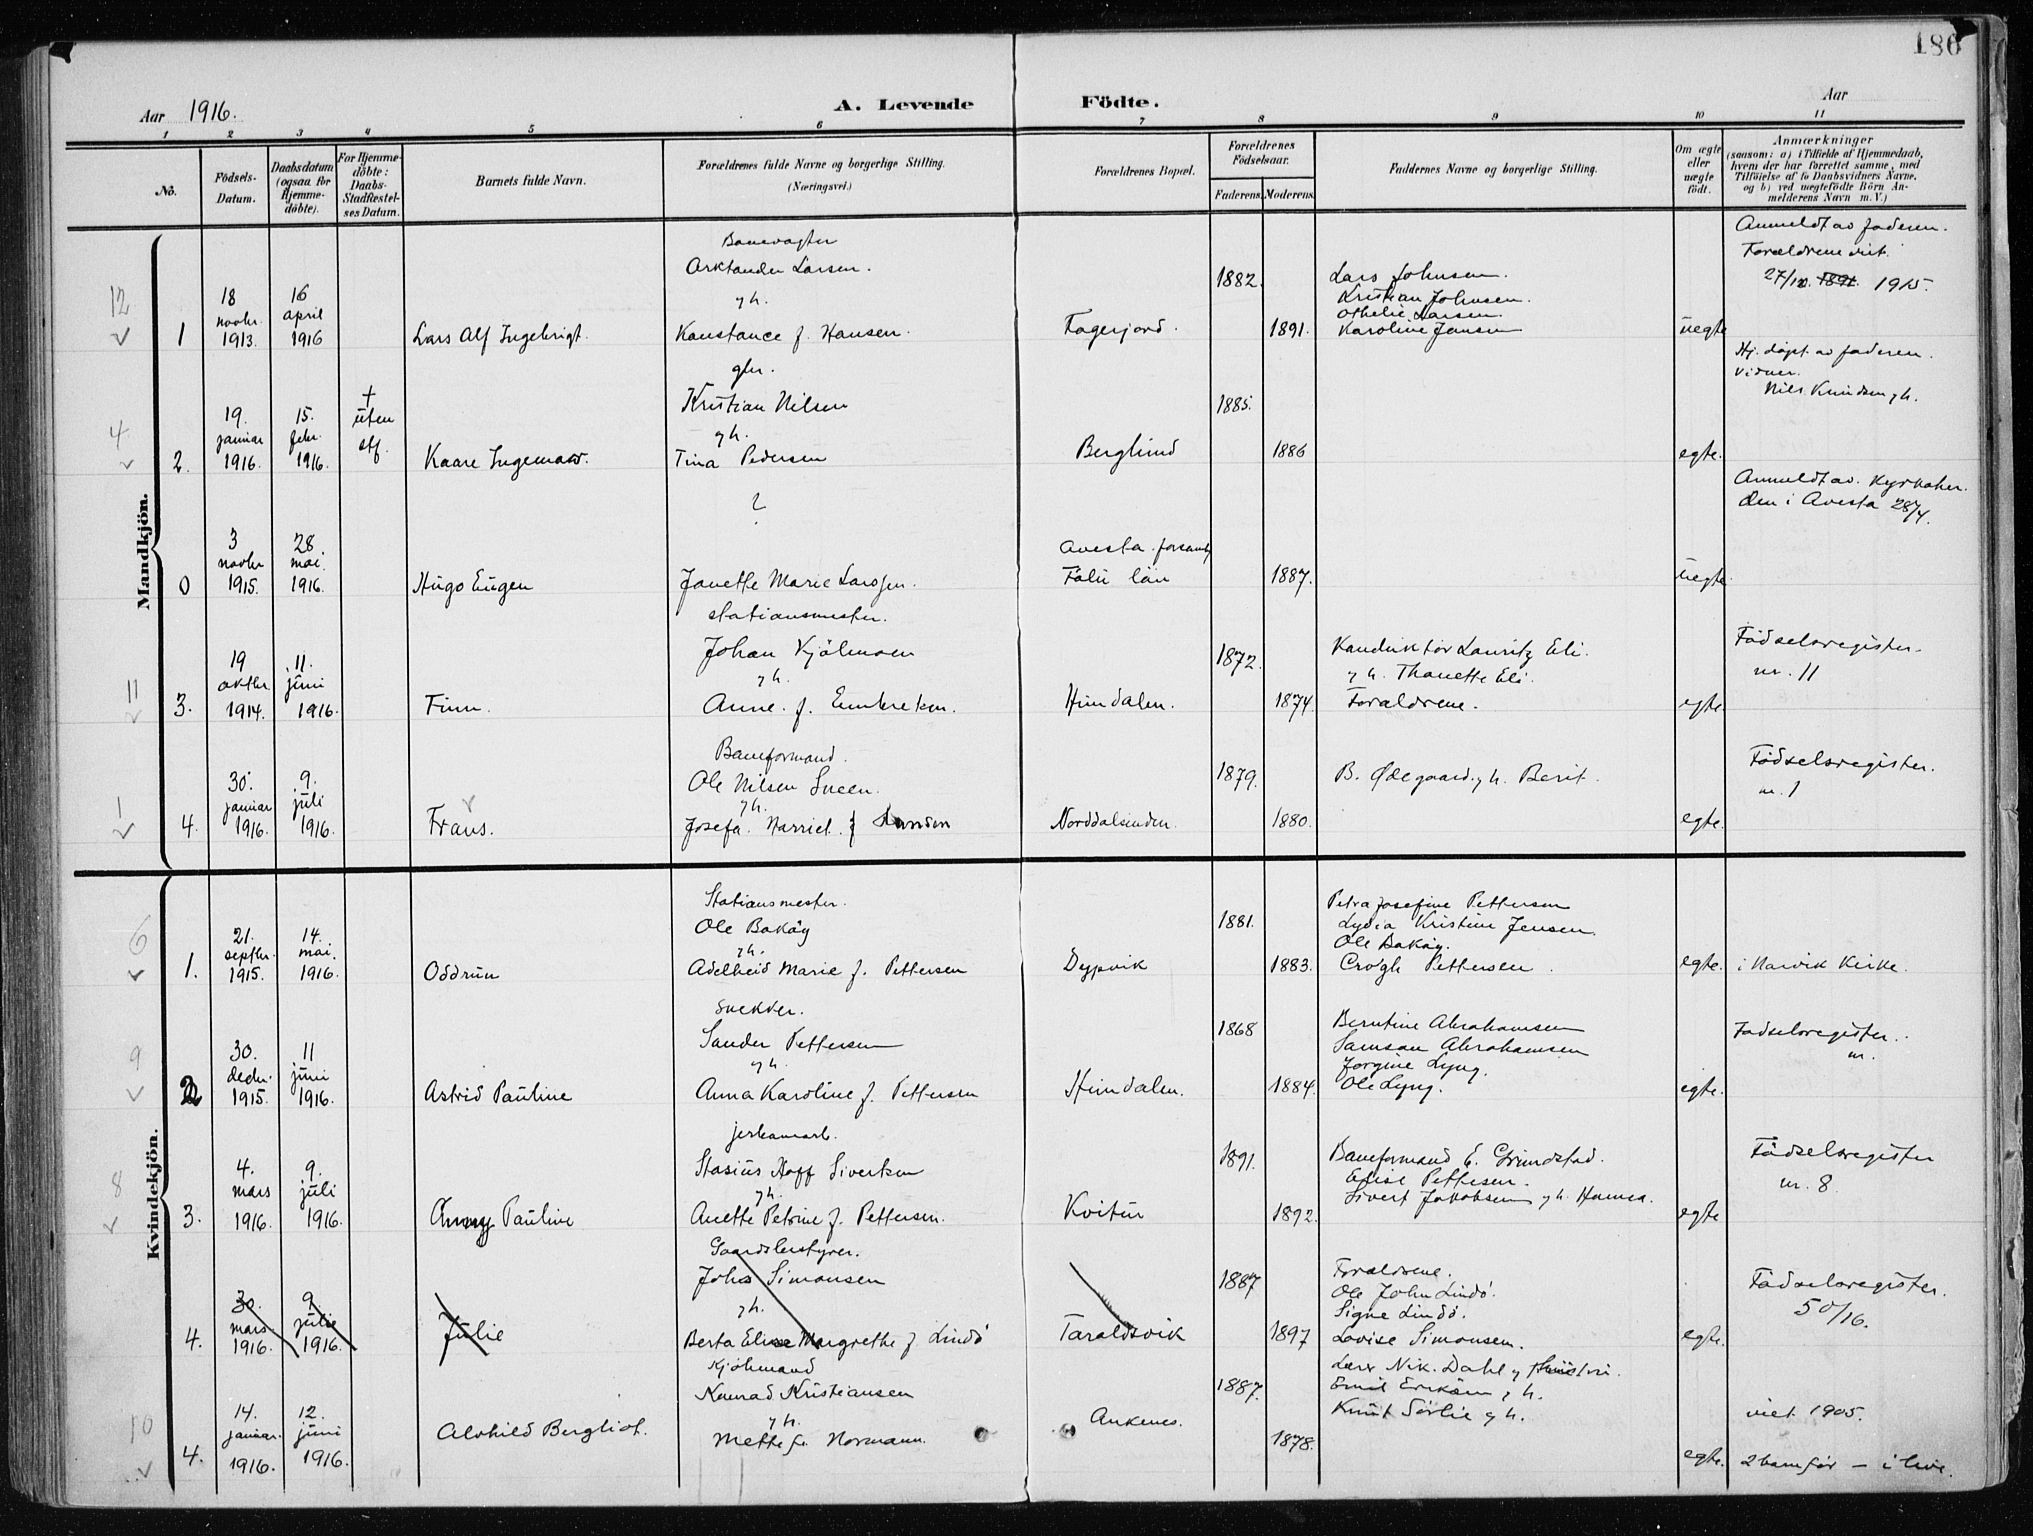 186
Aar 1916.
A. Levende Födte.
Aar
1 2 3 4 5 6 7 8 9 10 11
No.
Födsels-Datum.
Daabsdatum (ogsaa for Hjemme-döbte).
For Hjemme-döbte: Daabs-Stadfæstel-ses Datum.
Barnets fulde Navn.
Forældrenes fulde Navne og borgerlige Stilling.
(Næringsvei.)
Forældrenes Bopæl.
Forældrenes Födselsaar.
Faderens. Moderens.
Faddernes Navne og borgerlige Stilling.
Om ægte eller uægte födt.
Anmærkninger
(saasom: a) i Tilfælde af Hjemmedaab,
hvem der har forrettet samme, med
Tilföielse af to Daabsvidners Navne,
og b) ved uegtefödte Börn An-
melderens Navn m. V.)
Mandkjön.
12
1
18 novbr. 1913.
16 april 1916
Lars Alf Ingebrigt.
Banevogter
Arktander Larsen.
g h.
Konstance f. Hansen.
Fagerjord.
1882.
1891.
Lars Johnsen.
Kristian Johnsen.
Othelie Larsen.
Karoline Jensen
uegte
Anmeldt av faderen.
Forældrene viet
27/12. 1891. 1915.
4
2.
19. januar 1916.
15. febr. 1916.
† uten stf.
Kaare Ingemar.
gbr.
Kristian Nilsen
g h.
Tina Pedersen
Berglund
1885.
1886
egte.
Hj. døpt av faderen.
Vidner.
Nils Knudsen g h.
0
3 novbr 1915.
28. mai. 1916.
Hugo Eugen
?
Janette Marie Larssen.
Avesta forsaml
Falu län
1887.
uegte
Anmeldt av Kyrkoher.
den i Avesta 28/4.
11
3.
19 oktbr. 1914.
11. juni 1916.
Finn.
stationsmester.
Johan Kjølmoen
g h.
Anne f. Embretsen.
Hundalen.
1872.
1874.
Konduktør Lauritz Eli.
g h. Thanette Eli.
Forældrene.
egte.
Fødselsregister.
nr. 11
1
4.
30. januar 1916.
9. juli 1916.
Frans.
Baneformand.
Ole Nilsen Sneen.
g h.
Josefa Harriet f
Norddalsenden.
1879.
1880.
B. Ødegaard g h. Berit.
egte.
Fødselsregister.
nr. 1
Kvindekjön.
6
1.
21. septbr. 1915.
14. mai. 1916.
Oddrun
Stationsmester.
Ole Bakøy
g h.
Adelheid Marie f. Pettersen
Dypvik
1881.
1883.
Petra Josefine Pettersen
Lydia Kristine Jensen.
Ole Bakøy.
Crøgh Pettersen.
egte.
i Narvik Kirke.
9
2
30. decbr. 1915.
11 juni 1916.
Astrid Pauline
snekker.
Sander Pettersen
g h.
Anna Karoline f. Pettersen
Hundalen.
1868
1884.
Berntine Abrahamsen
Samson Abrahamsen
Jorgine Lyng.
Ole Lyng.
egte.
Fødselsregister.
nr.
8
3.
4. mars 1916.
9. juli 1916.
Pauline
jernbanearb.
Stasius Hoff Sivertsen
g h.
Anette Petrine f. Pettersen.
Kvitur
1891.
1892.
Baneformand E. Grundstad.
Elise Pettersen.
Sivert Jakobsen g h. Hanna.
egte
Fødselsregister
nr. 8.
4.
30. mars 1916.
9 juli 1916.
Julie
Gaardsbestyrer.
Johs Simonsen
g h.
Berta Elise Margrethe f Lindø
Taraldsvik
1887
1897
Forældrene.
Ole John Lindø.
Signe Lindø.
Lovise Simonsen.
egte.
Fødselsregister.
50/16.
10
4.
14. januar. 1916.
12. juni 1916.
Alvhild Bergliot.
Kjøbmand
Konrad Kristiansen
g h.
Mette f. Normann.
Ankenes.
1887.
1878.
Lærer Nik. Dahl g hustru.
Emil Eriksen g h.
Knut Sørlie g h.
egte.
viet 1905.
2 barn før — i live.